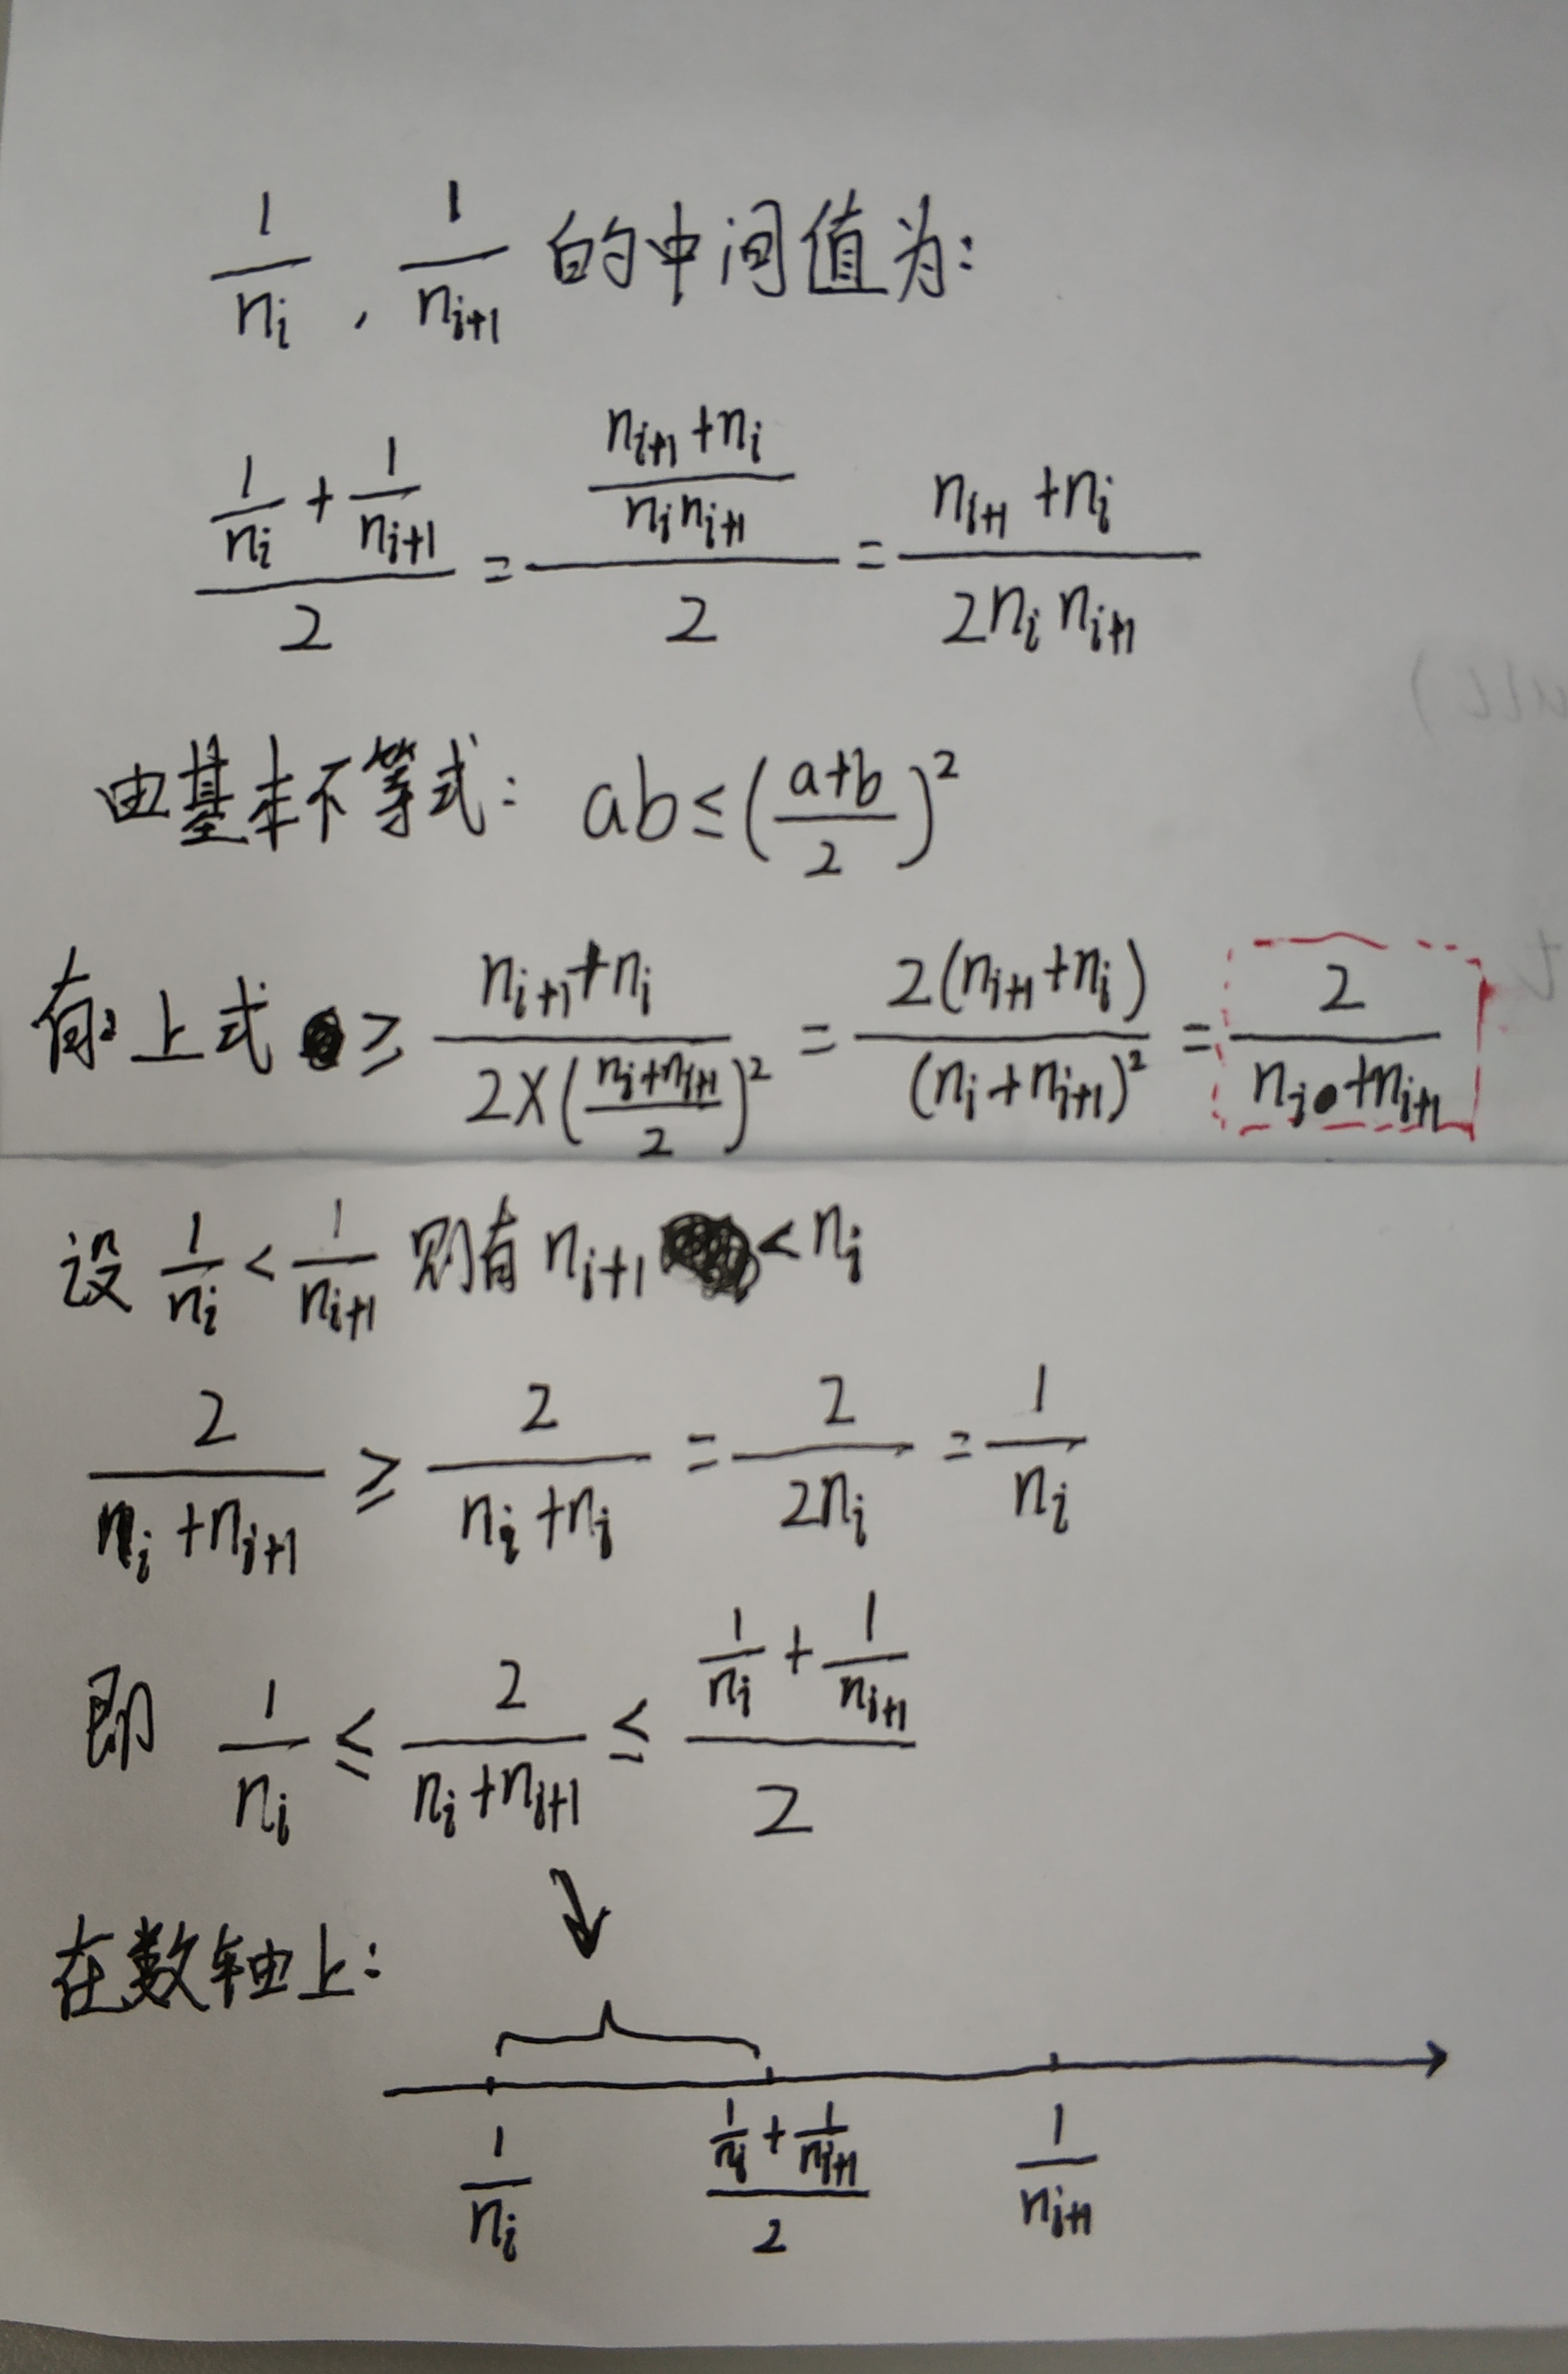 1/nᵢ , 1/nᵢ₊₁ 的中间值为:
(1/nᵢ + 1/nᵢ₊₁)/2 = ((nᵢ₊₁+nᵢ)/(nᵢnᵢ₊₁))/2 = (nᵢ₊₁+nᵢ)/(2nᵢnᵢ₊₁)
由基本不等式: ab ≤ ((a+b)/2)²
有: 上式 ≥ (nᵢ₊₁+nᵢ)/(2×((nᵢ+nᵢ₊₁)/2)²) = 2(nᵢ₊₁+nᵢ)/(nᵢ+nᵢ₊₁)² = 2/(nᵢ+nᵢ₊₁)
设 1/nᵢ < 1/nᵢ₊₁ 则有 nᵢ₊₁ < nᵢ
2/(nᵢ+nᵢ₊₁) ≥ 2/(nᵢ+nᵢ) = 2/(2nᵢ) = 1/nᵢ
即 1/nᵢ ≤ 2/(nᵢ+nᵢ₊₁) ≤ (1/nᵢ + 1/nᵢ₊₁)/2
在数轴上:
1/nᵢ (1/nᵢ + 1/nᵢ₊₁)/2 1/nᵢ₊₁